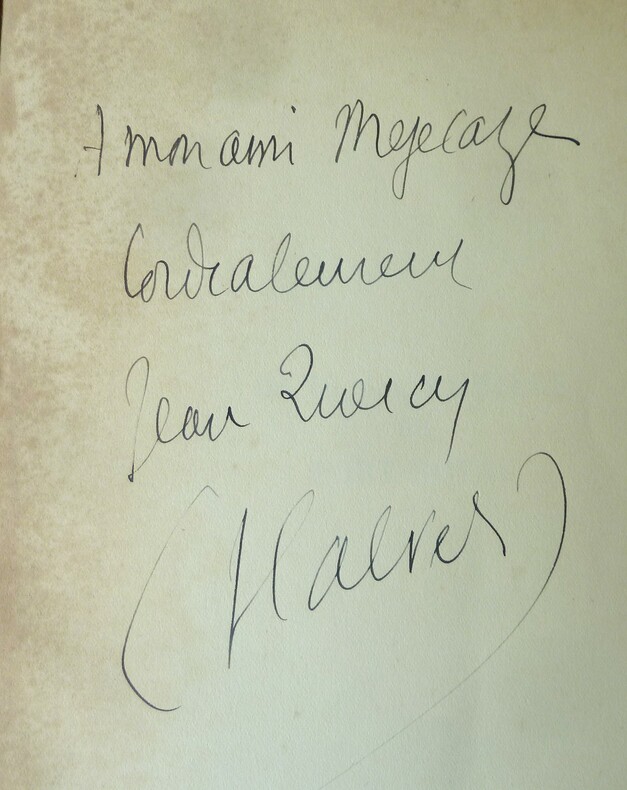 A mon ami Mejecaze
Cordialement
Jean Quercy